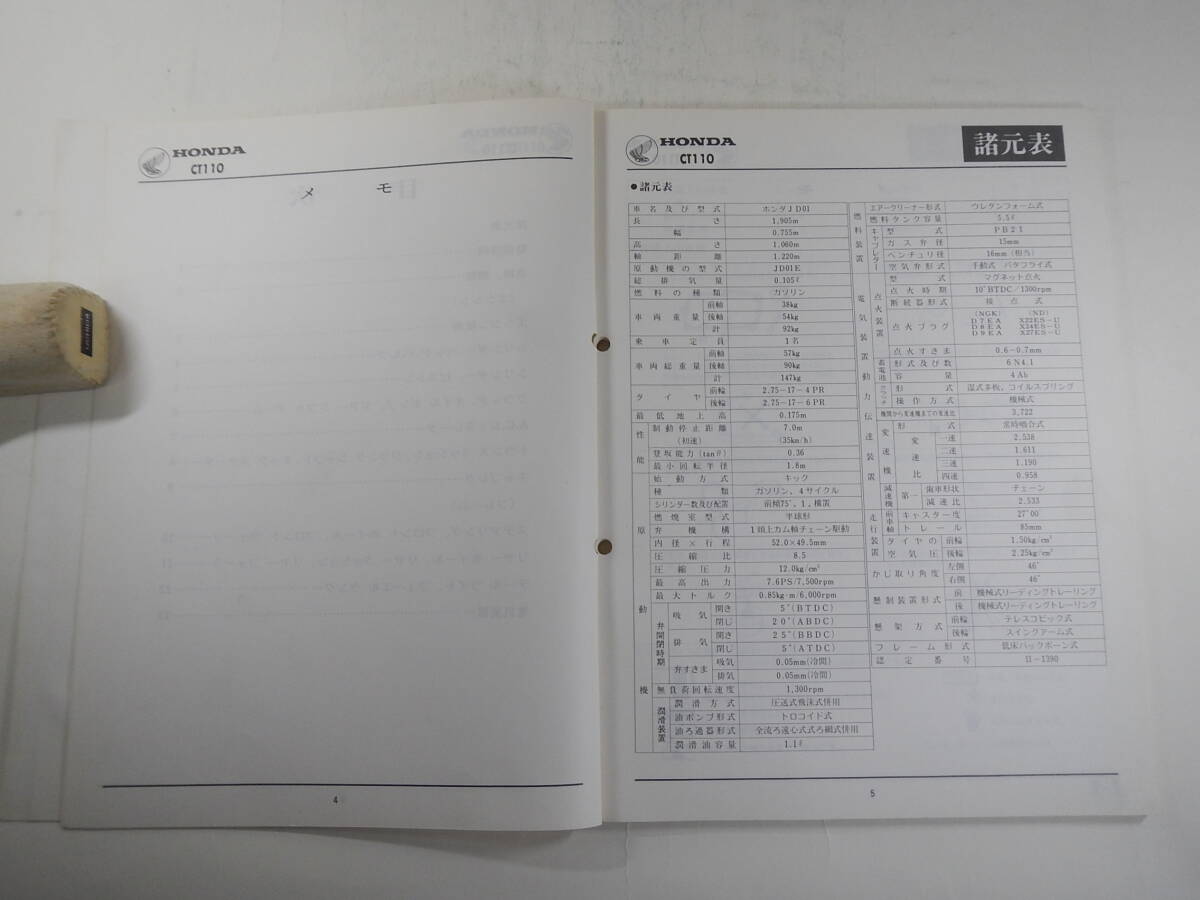 HONDA
CT110
メモ
4
HONDA
CT110
諸元表
●諸元表
車名及び型式 ホンダJD01
長さ 1.905m
幅 0.755m
高さ 1.060m
軸距離 1.220m
原動機の型式 JD01E
総排気量 0.105ℓ
燃料の種類 ガソリン
車両重量 前軸 38kg
後軸 54kg
計 92kg
乗車定員 1名
車両総重量 前軸 57kg
後軸 90kg
計 147kg
タイヤ 前輪 2.75-17-4PR
後輪 2.75-17-6PR
最低地上高 0.175m
性能 制動停止距離 7.0m
(初速) (35km/h)
登坂能力(tanθ) 0.36
最小回転半径 1.8m
原動機 始動方式 キック
種類 ガソリン、4サイクル
シリンダー数及び配置 前傾75°、1、横置
燃焼室型式 半球形
弁機構 1頭上カム軸チェーン駆動
内径×行程 52.0×49.5mm
圧縮比 8.5
圧縮圧力 12.0kg/cm²
最高出力 7.6PS/7,500rpm
最大トルク 0.85kg-m/6,000rpm
弁開閉時期 吸気 開き 5°(BTDC)
閉じ 20°(ABDC)
排気 開き 25°(BBDC)
閉じ 5°(ATDC)
弁すきま 吸気 0.05mm(冷間)
排気 0.05mm(冷間)
無負荷回転速度 1,300rpm
潤滑装置 潤滑方式 圧送式飛沫式併用
油ポンプ形式 トロコイド式
油ろ過器形式 全流ろ過遠心式式ろ網式併用
潤滑油容量 1.1ℓ
燃料装置 エアークリーナー形式 ウレタンフォーム式
燃料タンク容量 5.5ℓ
キャブレター 型式 PB21
ガス弁径 15mm
ベンチュリ径 16mm(相当)
空気弁形式 手動式 バタフライ式
電気装置 点火装置 型式 マグネット点火
点火時期 10°BTDC/1300rpm
断続器形式 接点式
点火プラグ (NGK) (ND)
D7EA X22ES-U
D8EA X24ES-U
D9EA X27ES-U
点火すきま 0.6-0.7mm
蓄電池 形式及び数 6N4.1
容量 4Ah
動力伝達装置 クラッチ 形式 湿式多板、コイルスプリング
操作方式 機械式
機関から変速機までの変速比 3.722
変速機 形式 常時噛合式
変速比 一速 2.538
二速 1.611
三速 1.190
四速 0.958
減速機 第一 歯車形状 チェーン
減速比 2.533
走行装置 前車軸 キャスター度 27°00′
トレール 85mm
タイヤの空気圧 前輪 1.50kg/cm²
後輪 2.25kg/cm²
かじ取り角度 左側 46°
右側 46°
懸制装置形式 前 機械式リーディングトレーリング
後 機械式リーディングトレーリング
懸架方式 前輪 テレスコピック式
後輪 スイングアーム式
フレーム形式 低床バックボーン式
認定番号 II-1390
5